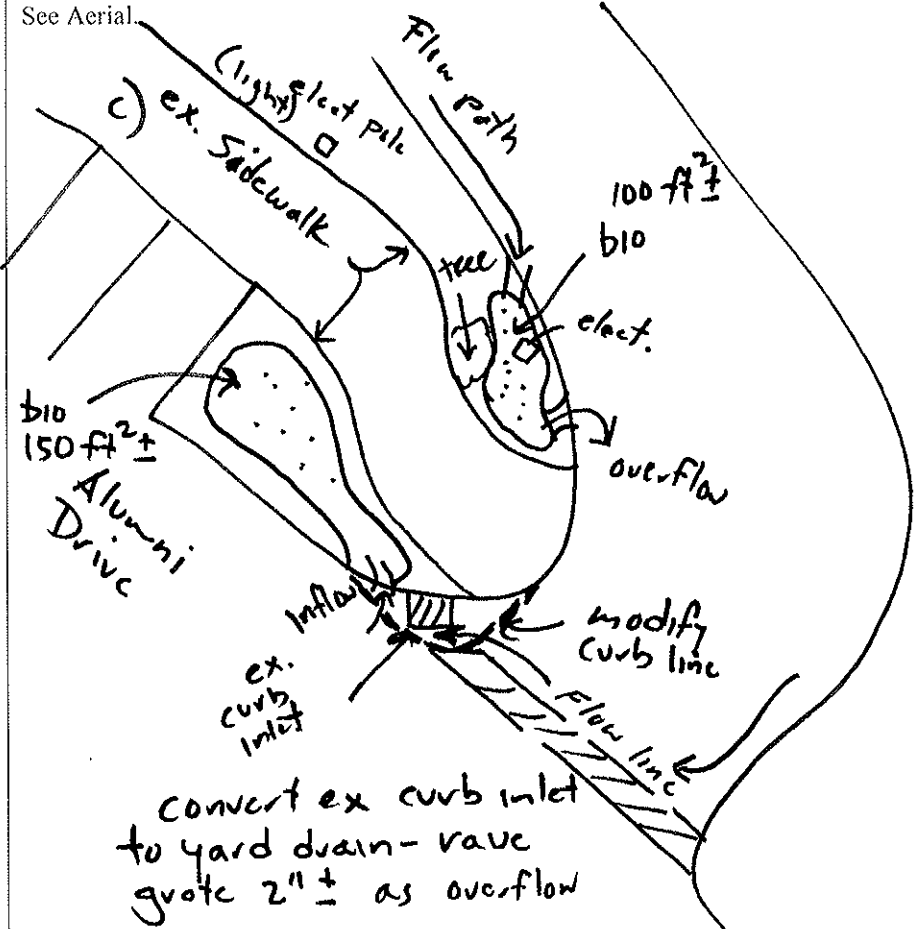 See Aerial.
(light) elect pole
c) ex. Sidewalk
Flow path
100 ft² ±
bio
tree
elect.
overflow
bio
150 ft² ±
Alumni
Drive
Inflow
ex.
curb
inlet
modify
curb line
Flow line
convert ex curb inlet
to yard drain - rave
grate 2" ± as overflow